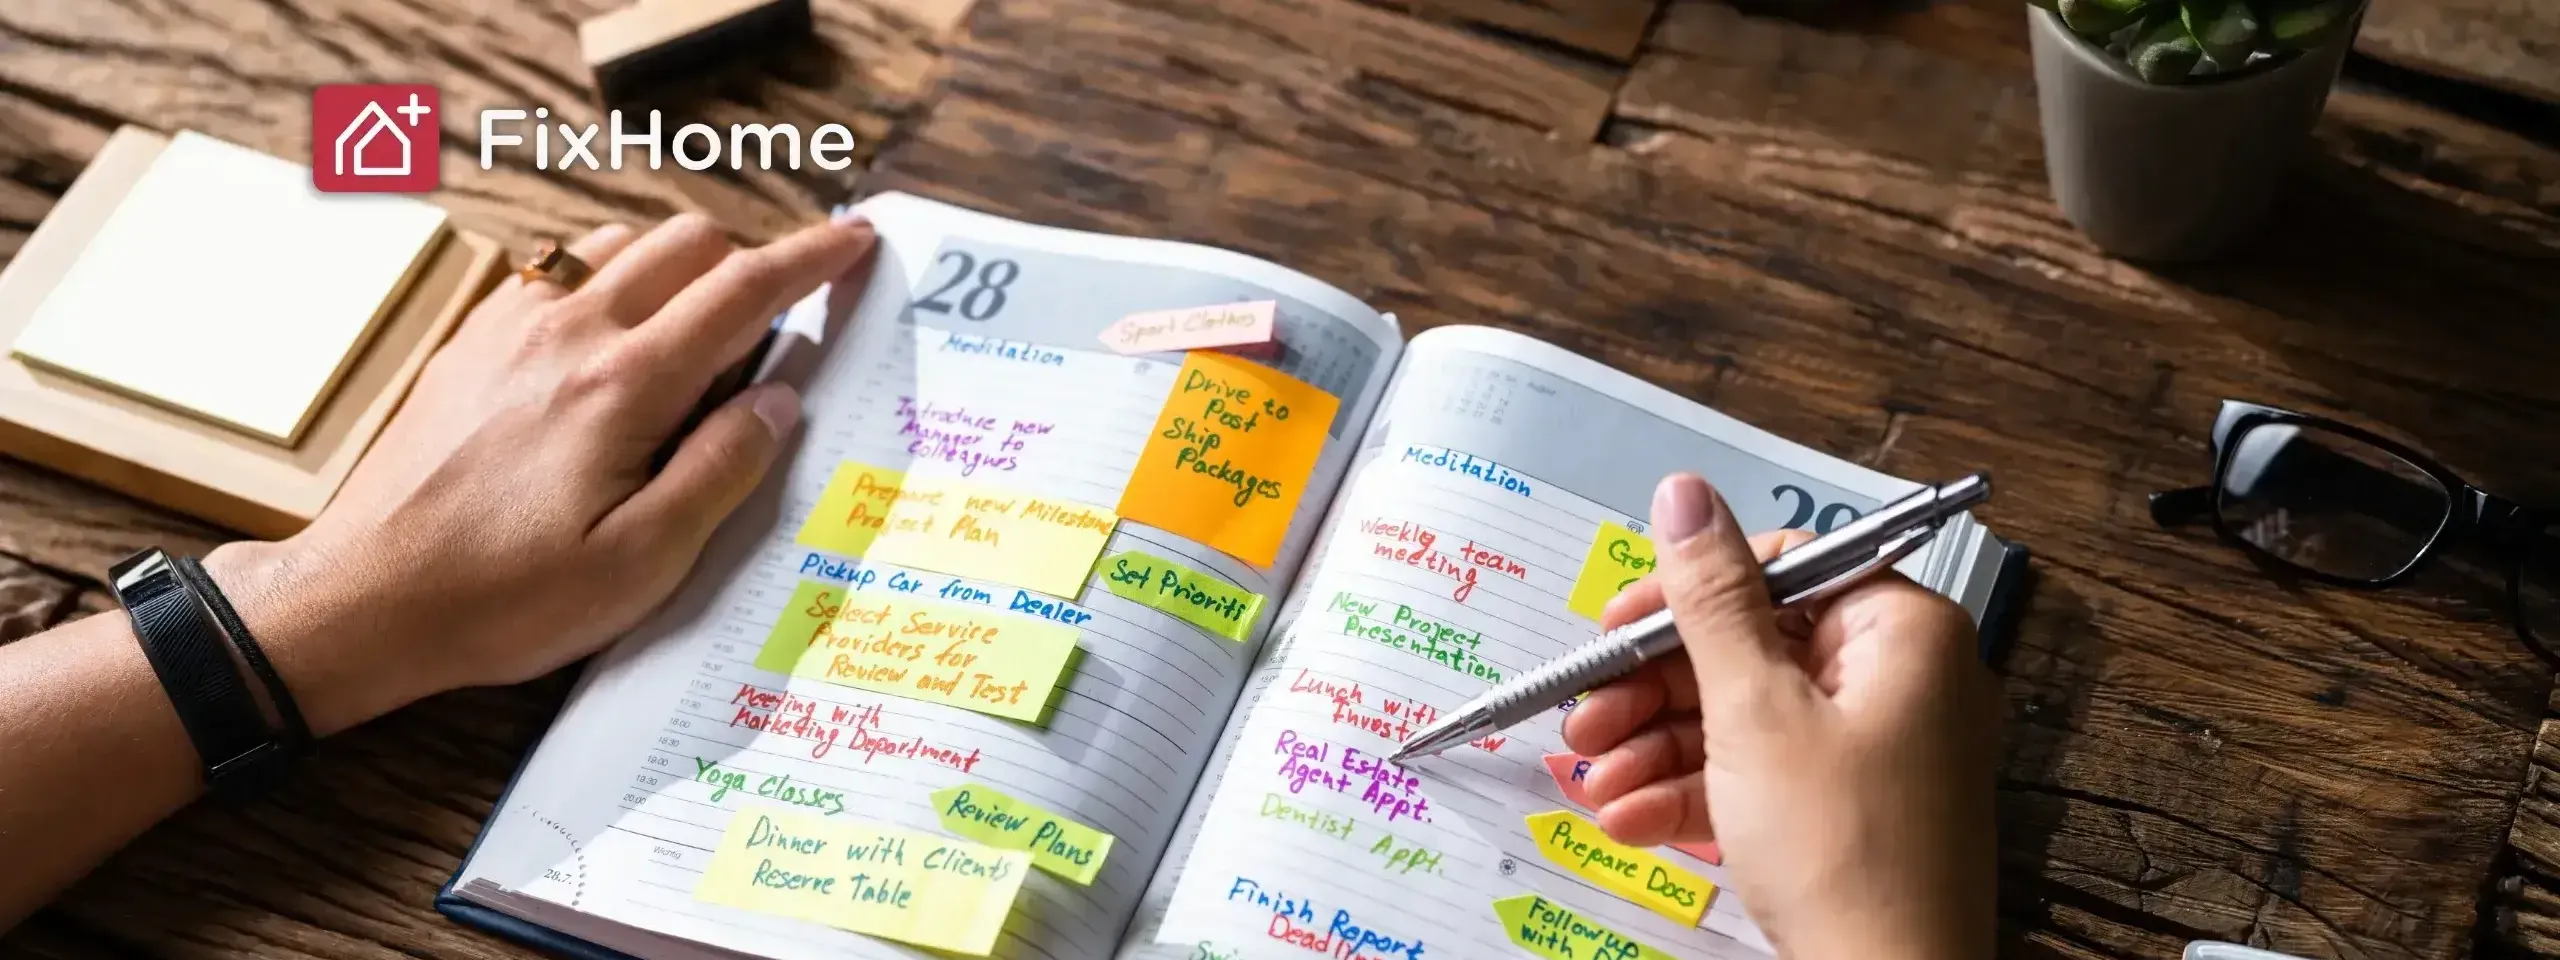 FixHome
28
Sport Clothes
Meditation
Drive to
Post
Ship
Packages
Introduce new
Manager to
Colleagues
Prepare new Milestone
Project Plan
Set Prioriti
Pickup Car from Dealer
Select Service
Providers for
Review and Test
Meeting with
Marketing Department
Yoga Classes
Review Plans
Dinner with Clients
Reserve Table
17:00
17:30
18:00
18:30
19:00
19:30
20:00
Wichtig
28.7.
29
Meditation
Weekly team
meeting
Get
New Project
Presentation
Lunch with
Real Estate
Agent Appt.
Dentist Appt.
Prepare Docs
Finish Report
Follow up
with